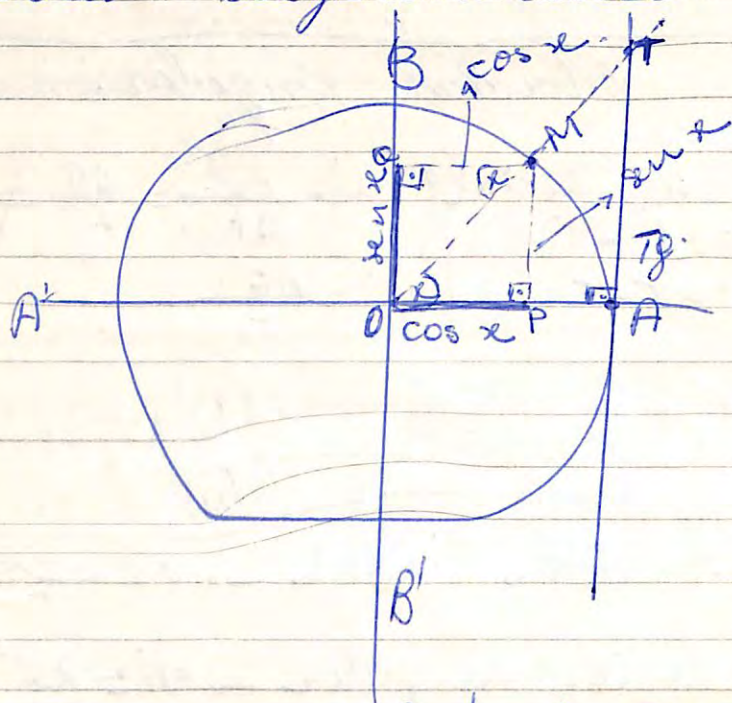 B
cos x.
T
M
Q
x
sen x
sen x
Tg.
x
A'
O
cos x
P
A
B'